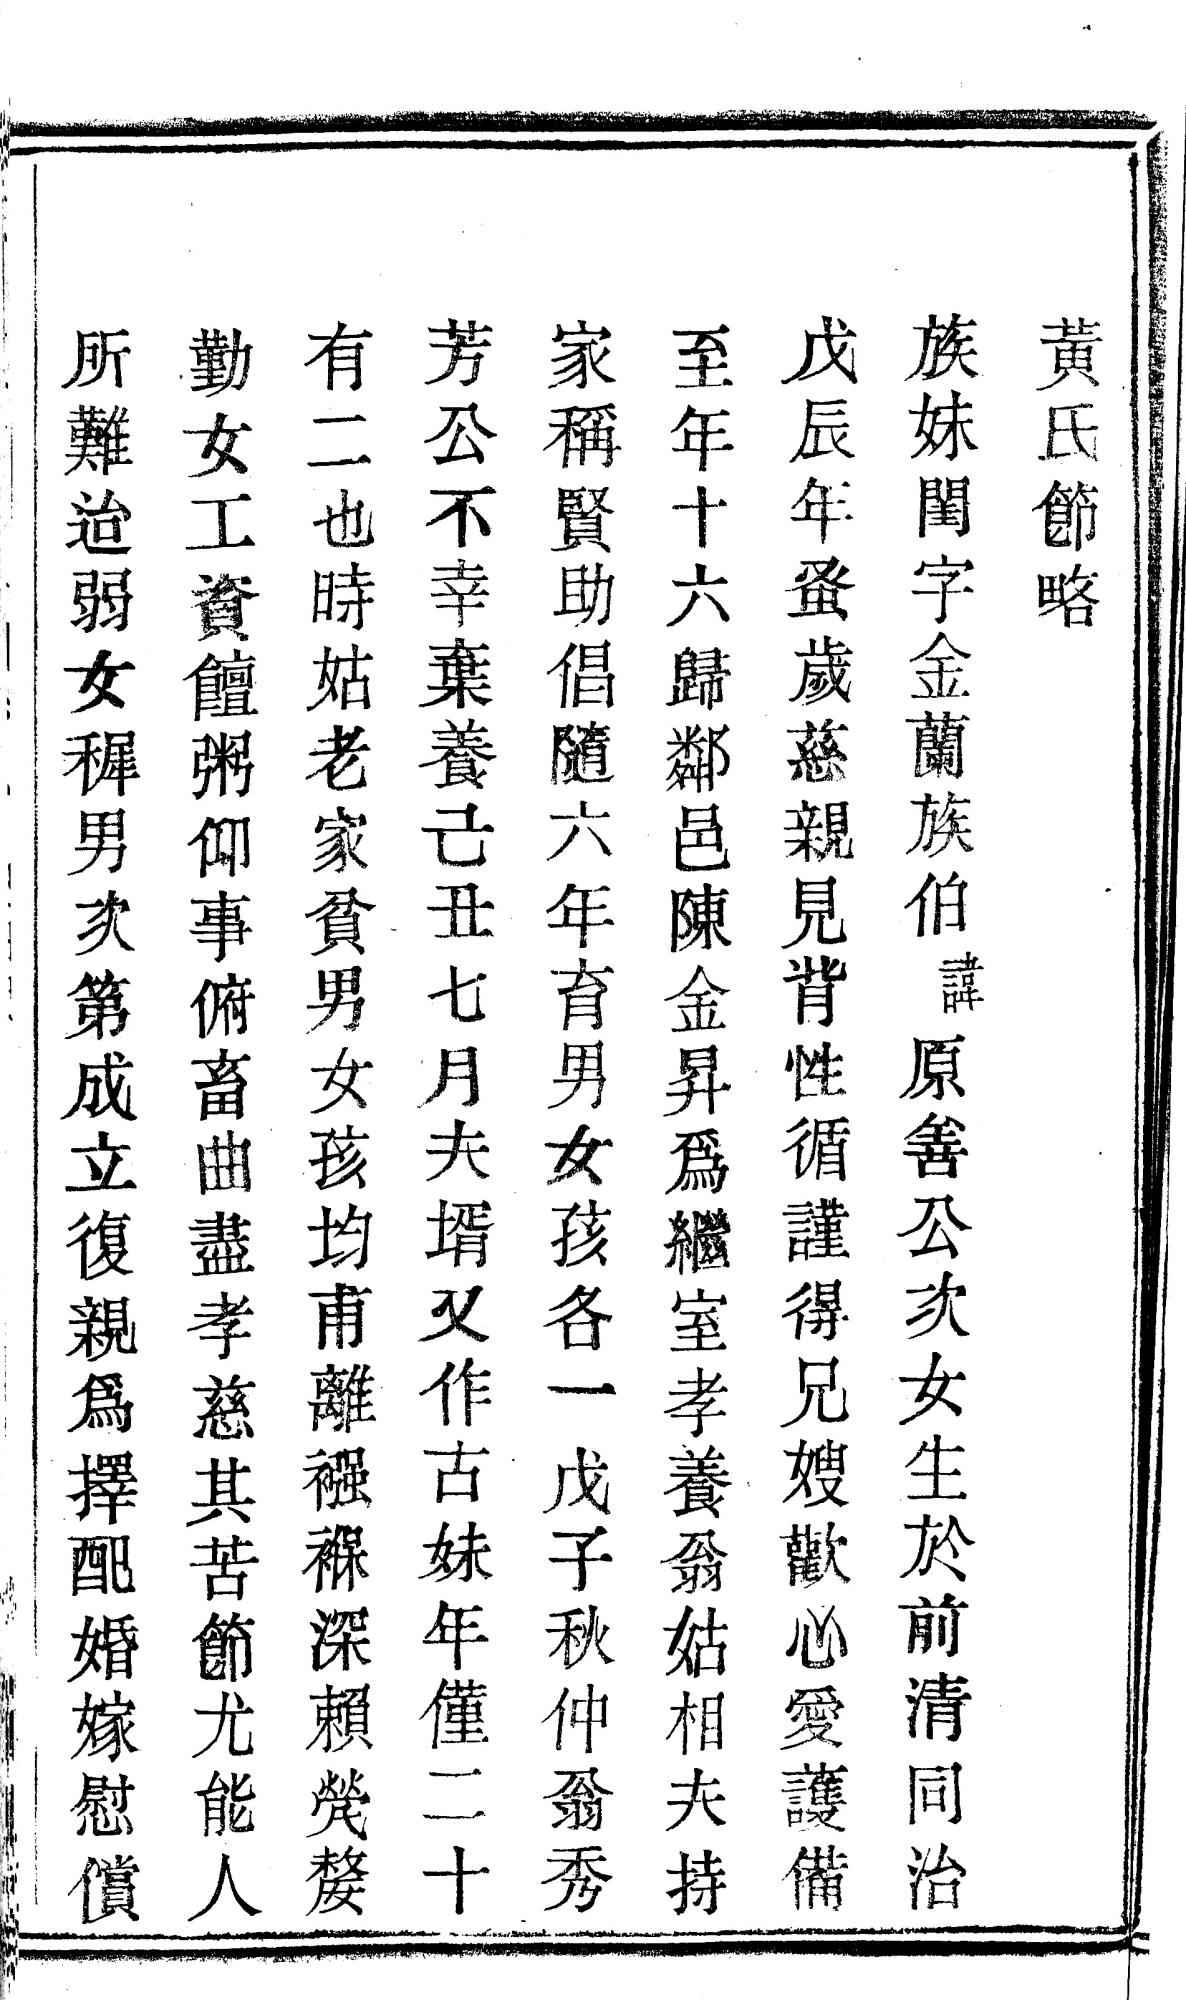 黃氏節略
族妹閨字金蘭族伯諱原善公次女生於前清同治
戊辰年蚤歲慈親見背性循謹得兄嫂歡心愛護備
至年十六歸鄰邑陳金昇爲繼室孝養翁姑相夫持
家稱賢助倡隨六年育男女孩各一戊子秋仲翁秀
芳公不幸棄養己丑七月夫壻又作古妹年僅二十
有二也時姑老家貧男女孩均甫離襁褓深賴煢嫠
勤女工資饘粥仰事俯畜曲盡孝慈其苦節尤能人
所難迨弱女穉男次第成立復親爲擇配婚嫁慰償